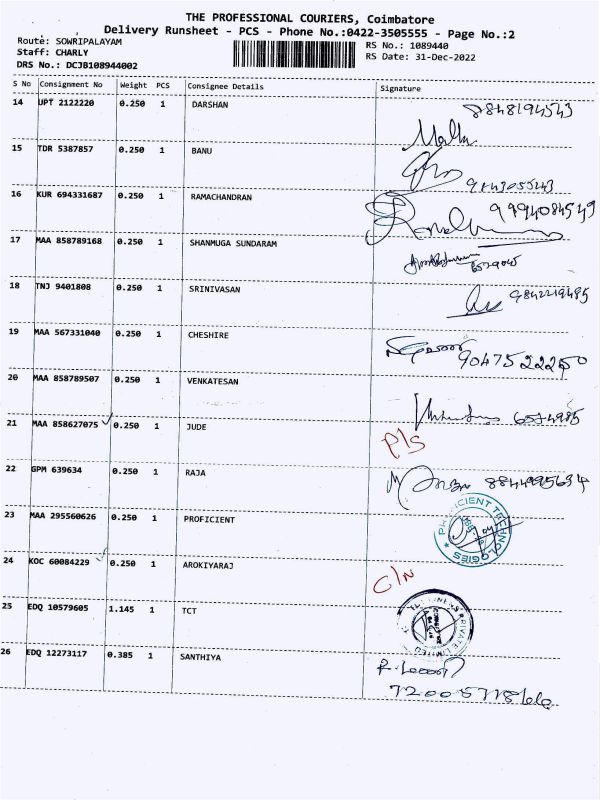 THE PROFESSIONAL COURIERS, Coimbatore
Delivery Runsheet - PCS - Phone No.:0422-3505555 - Page No.:2
Route: SOWRIPALAYAM
Staff: CHARLY
DRS No.: DCJB108944002
RS No.: 1089440
RS Date: 31-Dec-2022
S No Consignment No Weight PCS Consignee Details Signature
14 UPT 2122220 0.250 1 DARSHAN 8848194543
15 TDR 5387857 0.250 1 BANU 9843055543
16 KUR 694331687 0.250 1 RAMACHANDRAN 9994084549
17 MAA 858789168 0.250 1 SHANMUGA SUNDARAM
18 TNJ 9401808 0.250 1 SRINIVASAN 9842219485
19 MAA 567331040 0.250 1 CHESHIRE 9047522250
20 MAA 858789507 0.250 1 VENKATESAN 6574985
21 MAA 858627075 0.250 1 JUDE P/S
22 GPM 639634 0.250 1 RAJA
23 MAA 295560626 0.250 1 PROFICIENT PROFICIENT TECHNOLOGIES
24 KOC 60084229 0.250 1 AROKIYARAJ C/N
25 EDQ 10579605 1.145 1 TCT PRIVATE LIMITED
26 EDQ 12273117 0.385 1 SANTHIYA